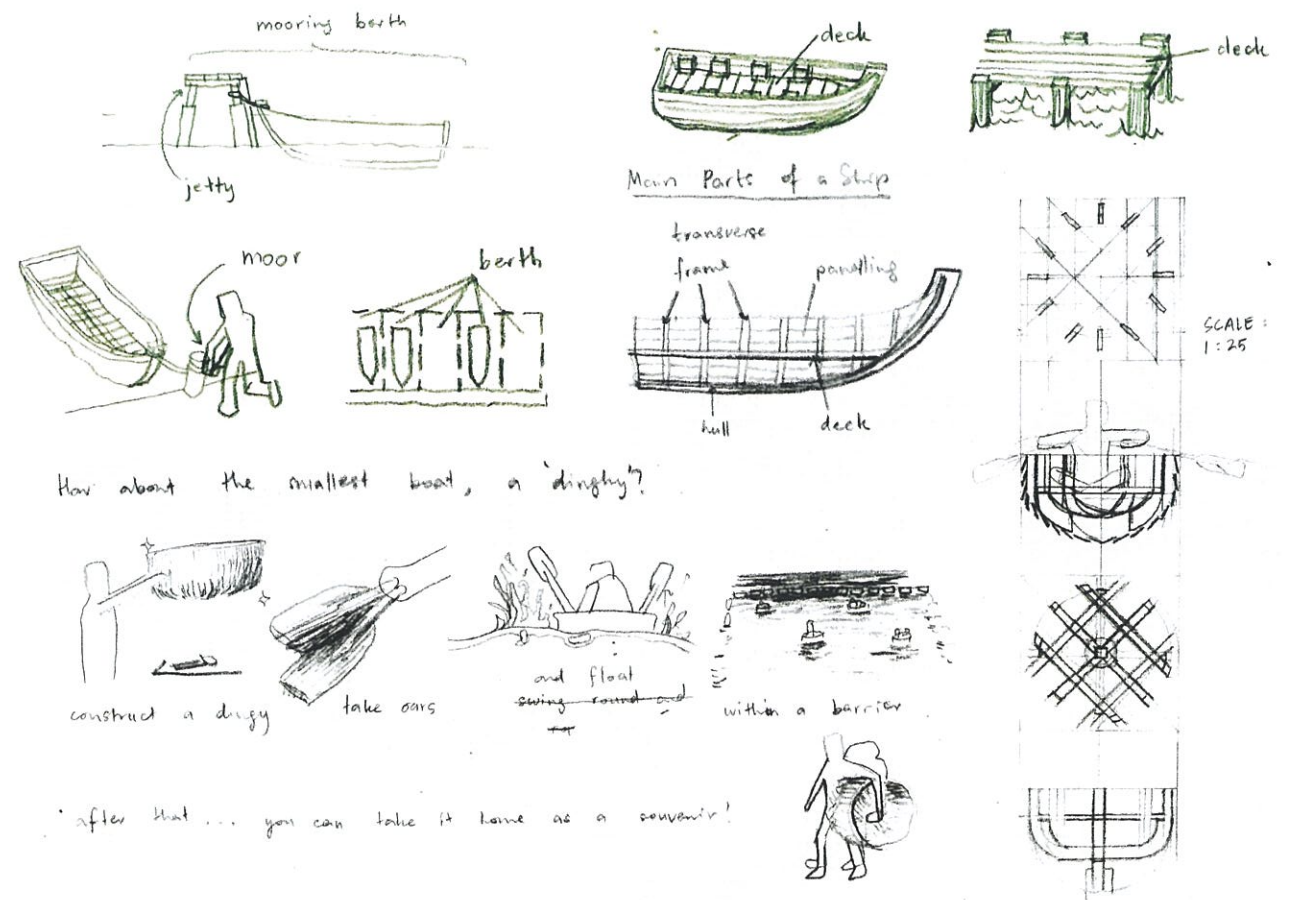 mooring berth
deck
deck
jetty
Main Parts of a Ship
transverse
frame
panelling
moor
berth
SCALE :
1 : 25
hull
deck
How about the smallest boat, a 'dinghy'?
construct a dingy
take oars
and float
swing round and
within a barrier
'after that ... you can take it home as a souvenir!